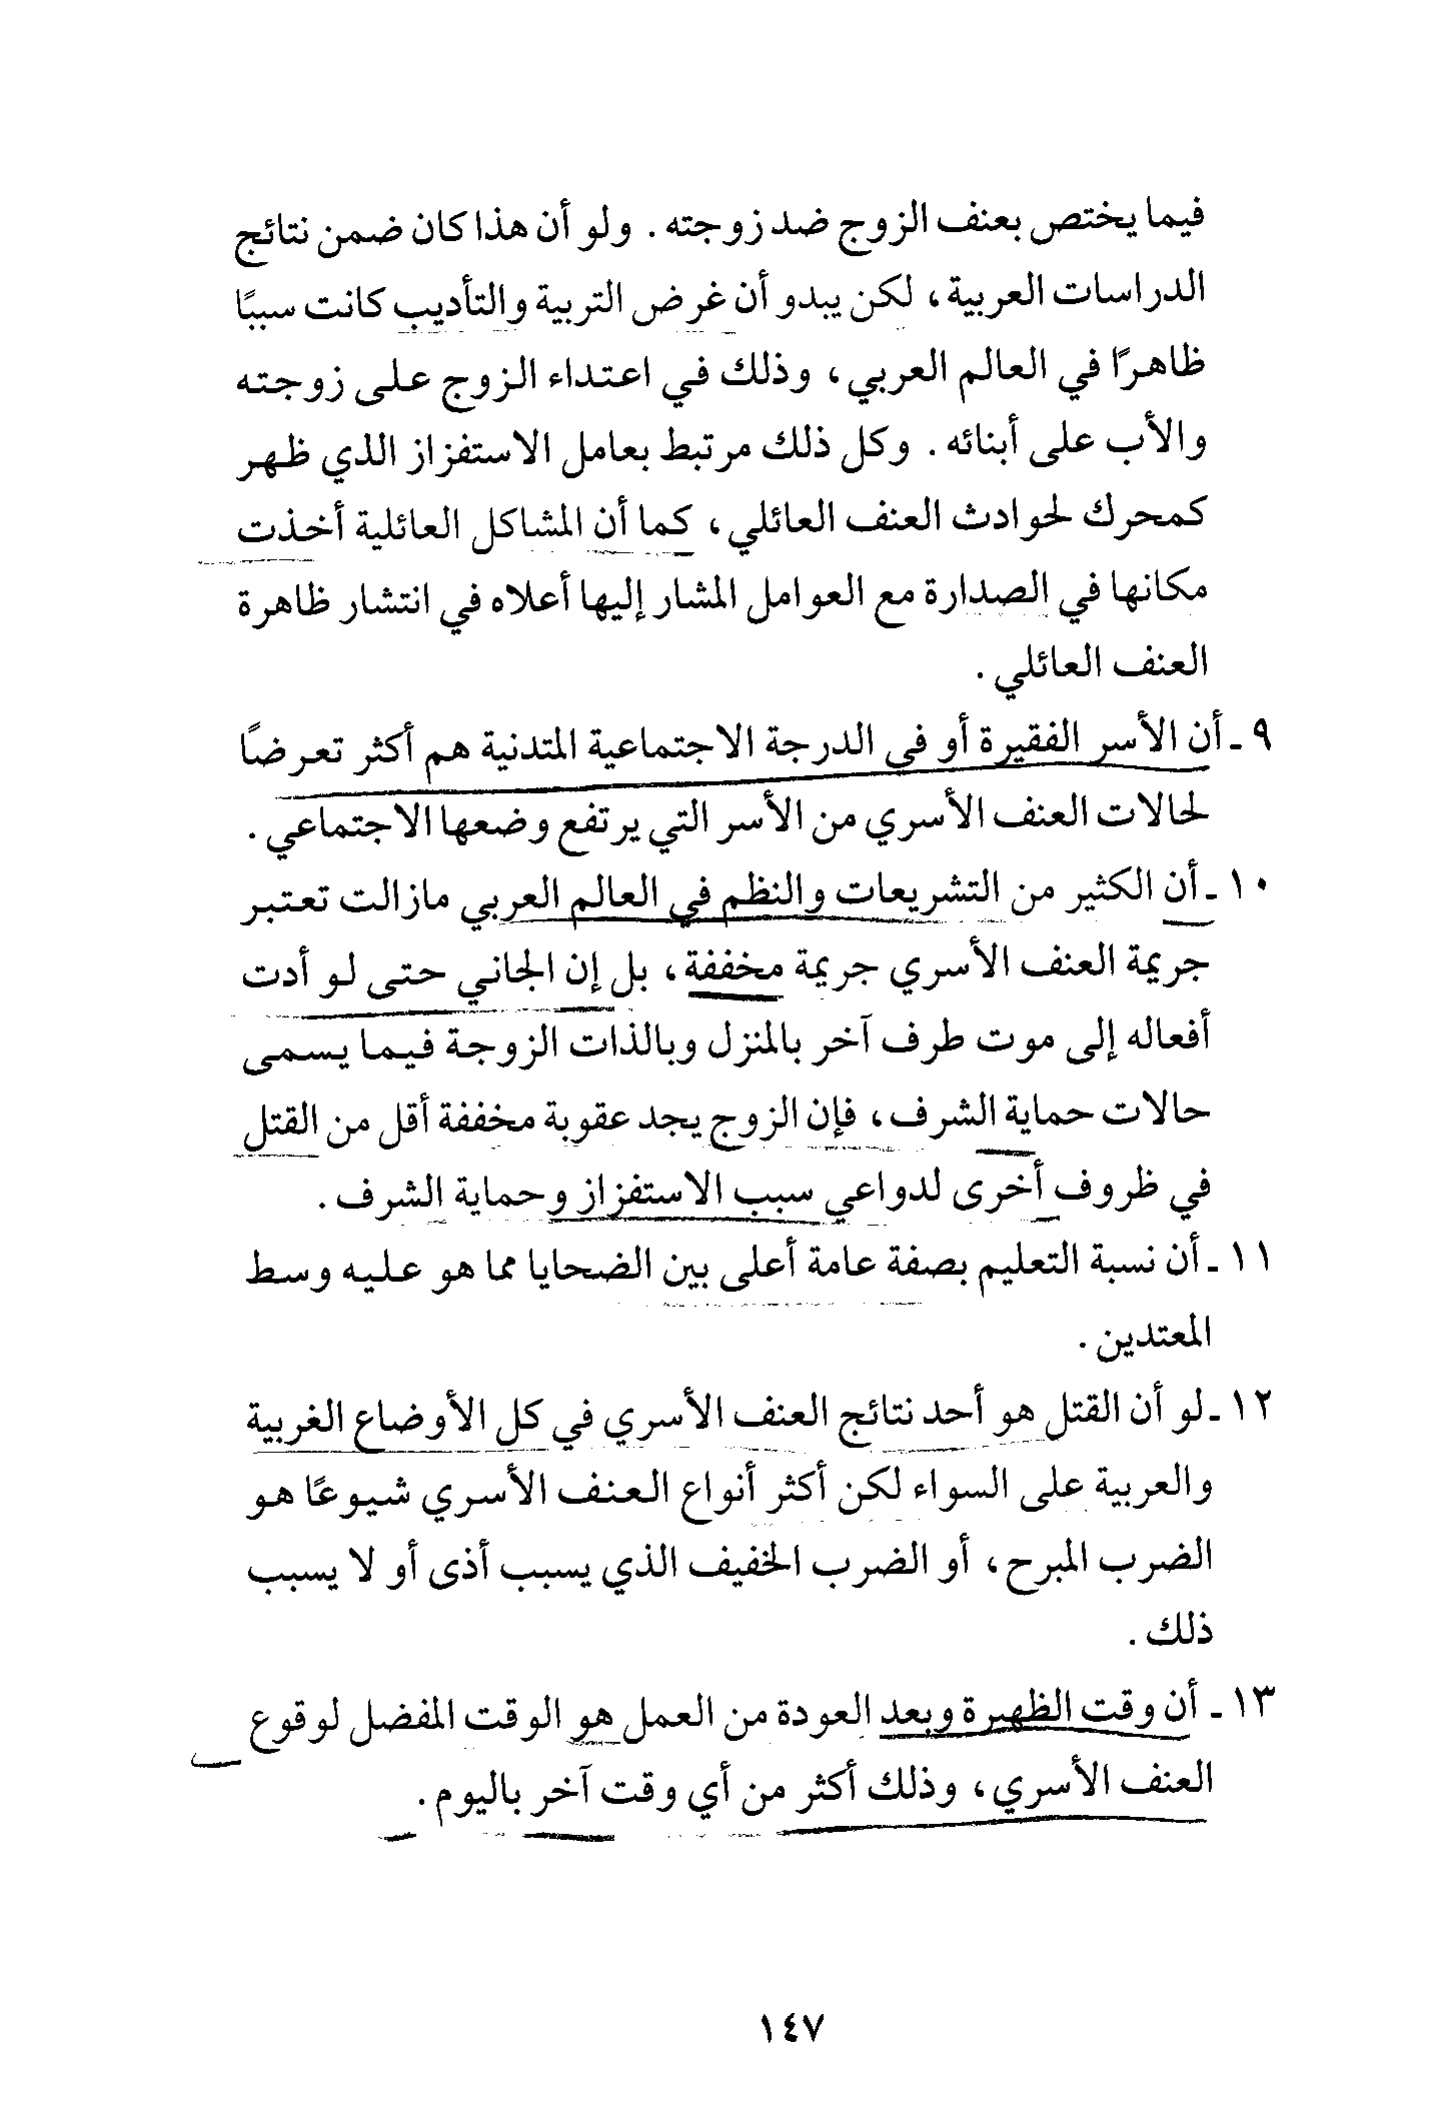 فيما يختص بعنف الزوج ضد زوجته . ولو أن هذا كان ضمن نتائج
الدراسات العربية، لكن يبدو أن غرض التربية والتأديب كانت سببًا
ظاهرًا في العالم العربي، وذلك في اعتداء الزوج على زوجته
والأب على أبنائه . وكل ذلك مرتبط بعامل الاستفزاز الذي ظهر
كمحرك لحوادث العنف العائلي، كما أن المشاكل العائلية أخذت
مكانها في الصدارة مع العوامل المشار إليها أعلاه في انتشار ظاهرة
العنف العائلي .
٩ ـ أن الأسر الفقيرة أو في الدرجة الاجتماعية المتدنية هم أكثر تعرضًا
لحالات العنف الأسري من الأسر التي يرتفع وضعها الاجتماعي .
١٠ ـ أن الكثير من التشريعات والنظم في العالم العربي مازالت تعتبر
جريمة العنف الأسري جريمة مخففة، بل إن الجاني حتى لو أدت
أفعاله إلى موت طرف آخر بالمنزل وبالذات الزوجة فيما يسمى
حالات حماية الشرف، فإن الزوج يجد عقوبة مخففة أقل من القتل
في ظروف أخرى لدواعي سبب الاستفزاز وحماية الشرف .
١١ ـ أن نسبة التعليم بصفة عامة أعلى بين الضحايا مما هو عليه وسط
المعتدين .
١٢ ـ لو أن القتل هو أحد نتائج العنف الأسري في كل الأوضاع الغربية
والعربية على السواء لكن أكثر أنواع العنف الأسري شيوعًا هو
الضرب المبرح، أو الضرب الخفيف الذي يسبب أذى أو لا يسبب
ذلك .
١٣ ـ أن وقت الظهيرة وبعد العودة من العمل هو الوقت المفضل لوقوع
العنف الأسري، وذلك أكثر من أي وقت آخر باليوم .
١٤٧